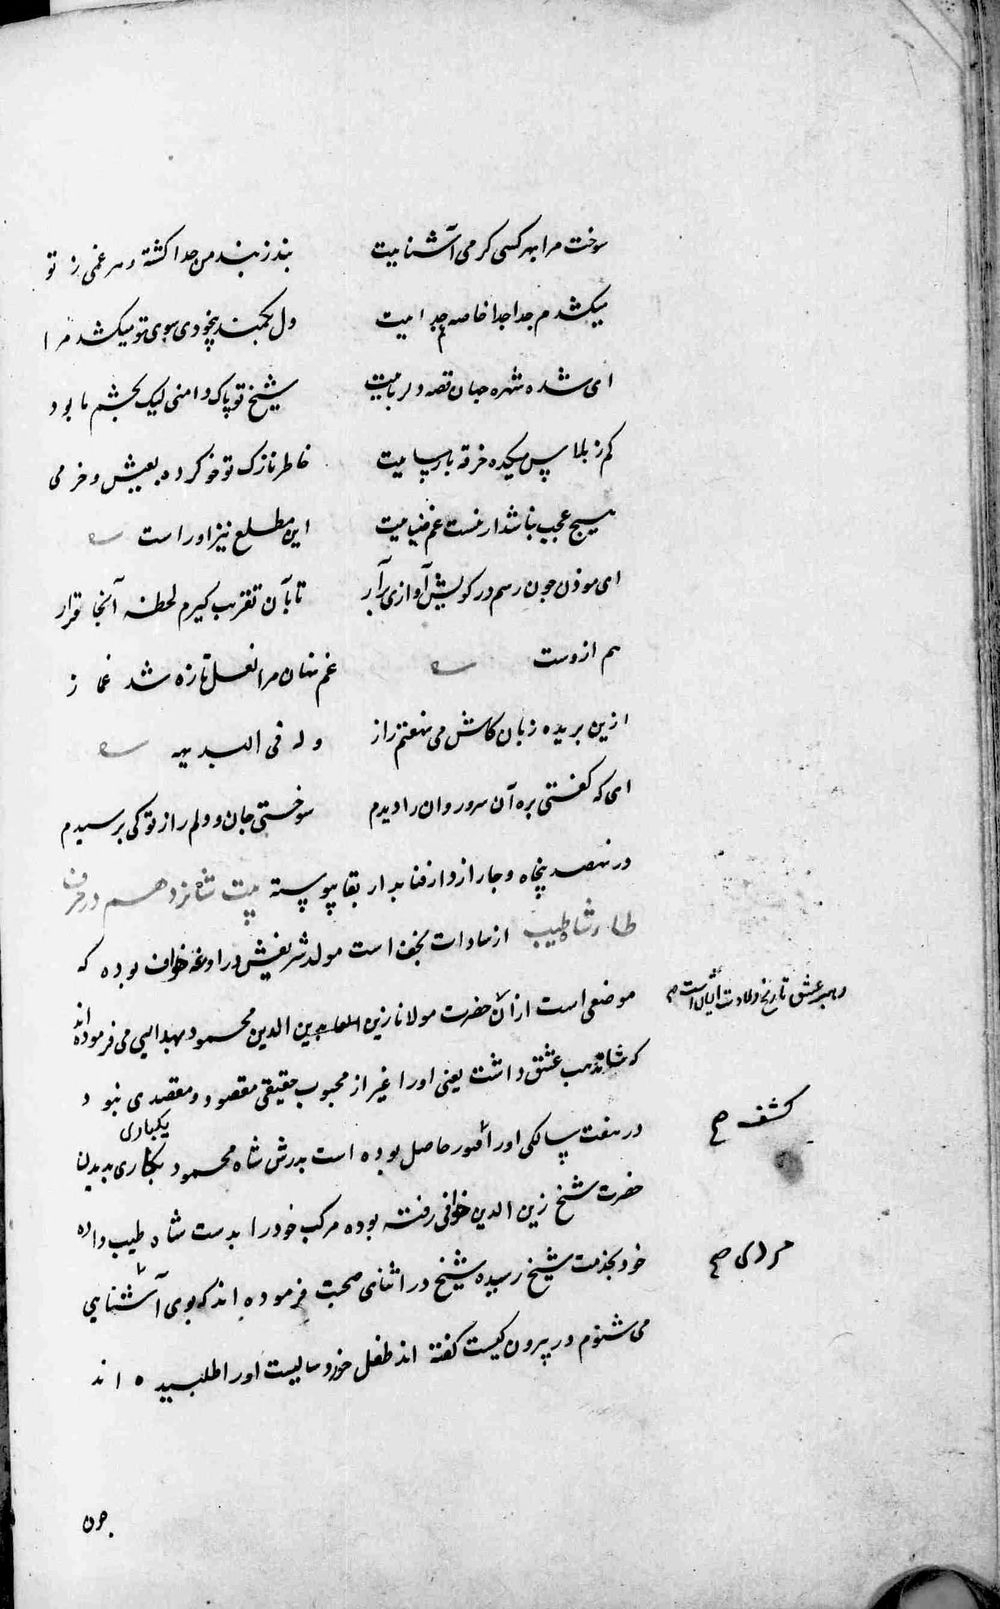 سوخت مرا بهر کسی کرمی آشناییت بند ز بند من جدا کشته و هر غمی ز تو
میکشدم جدا جدا خاصه غم جداییت دل بکمند بیخودی سوی تو میکشد مرا
ای شده شهره جهان قصه دلرباییت شیخ تو پاک دامنی لیک بچشم ما بود
کم ز پلاس میکده خرقه پارساییت خاطر نازک تو خو کرده بعیش و خرمی
هیچ عجب نباشد ار نیست غم ضیاییت این مطلع نیز اوراست
ای موذن چون رسم در کویش آوازی برآر تا بآن تقریب کیرم لحظه آنجا قرار
هم ازوست غم نهان مرا نعل تازه شد غماز
ازین بریده زبان کاش می نهفتم راز وله فی البدیهه
ای که کفتی بره آن سرو روان را دیدم سوختی جان و دلم را ز تو کی پرسیدم
در نهصد پنجاه و چار از دار فنا بدار بقا پیوسته بیت شانزدهم در حرف
طا شاه طیب از سادات نجف است مولد شریفش در اوغه خواف بوده که
موضعی است از آن حضرت مولانا زین العابدین الدین محمود بهدایی می فرموده اند
که شاه مذهب عشق داشت یعنی او را غیر از محبوب حقیقی مقصود و مقصدی نبود
در هفت سالکی او را حاصل بوده است پدرش شاه محمود یکباری بدیدن
حضرت شیخ زین الدین خوافی رفته بوده مرکب خود را بدست شاه طیب داده
خود بخدمت شیخ رسیده شیخ در اثنای صحبت فرموده اند که بوی آشنایی
می شنوم در بیرون کیست کفته اند طفل خورد سالیست او را طلبیده اند
رهبر عشق تاریخ ولادت ایشان است صح
کشف صح
چون